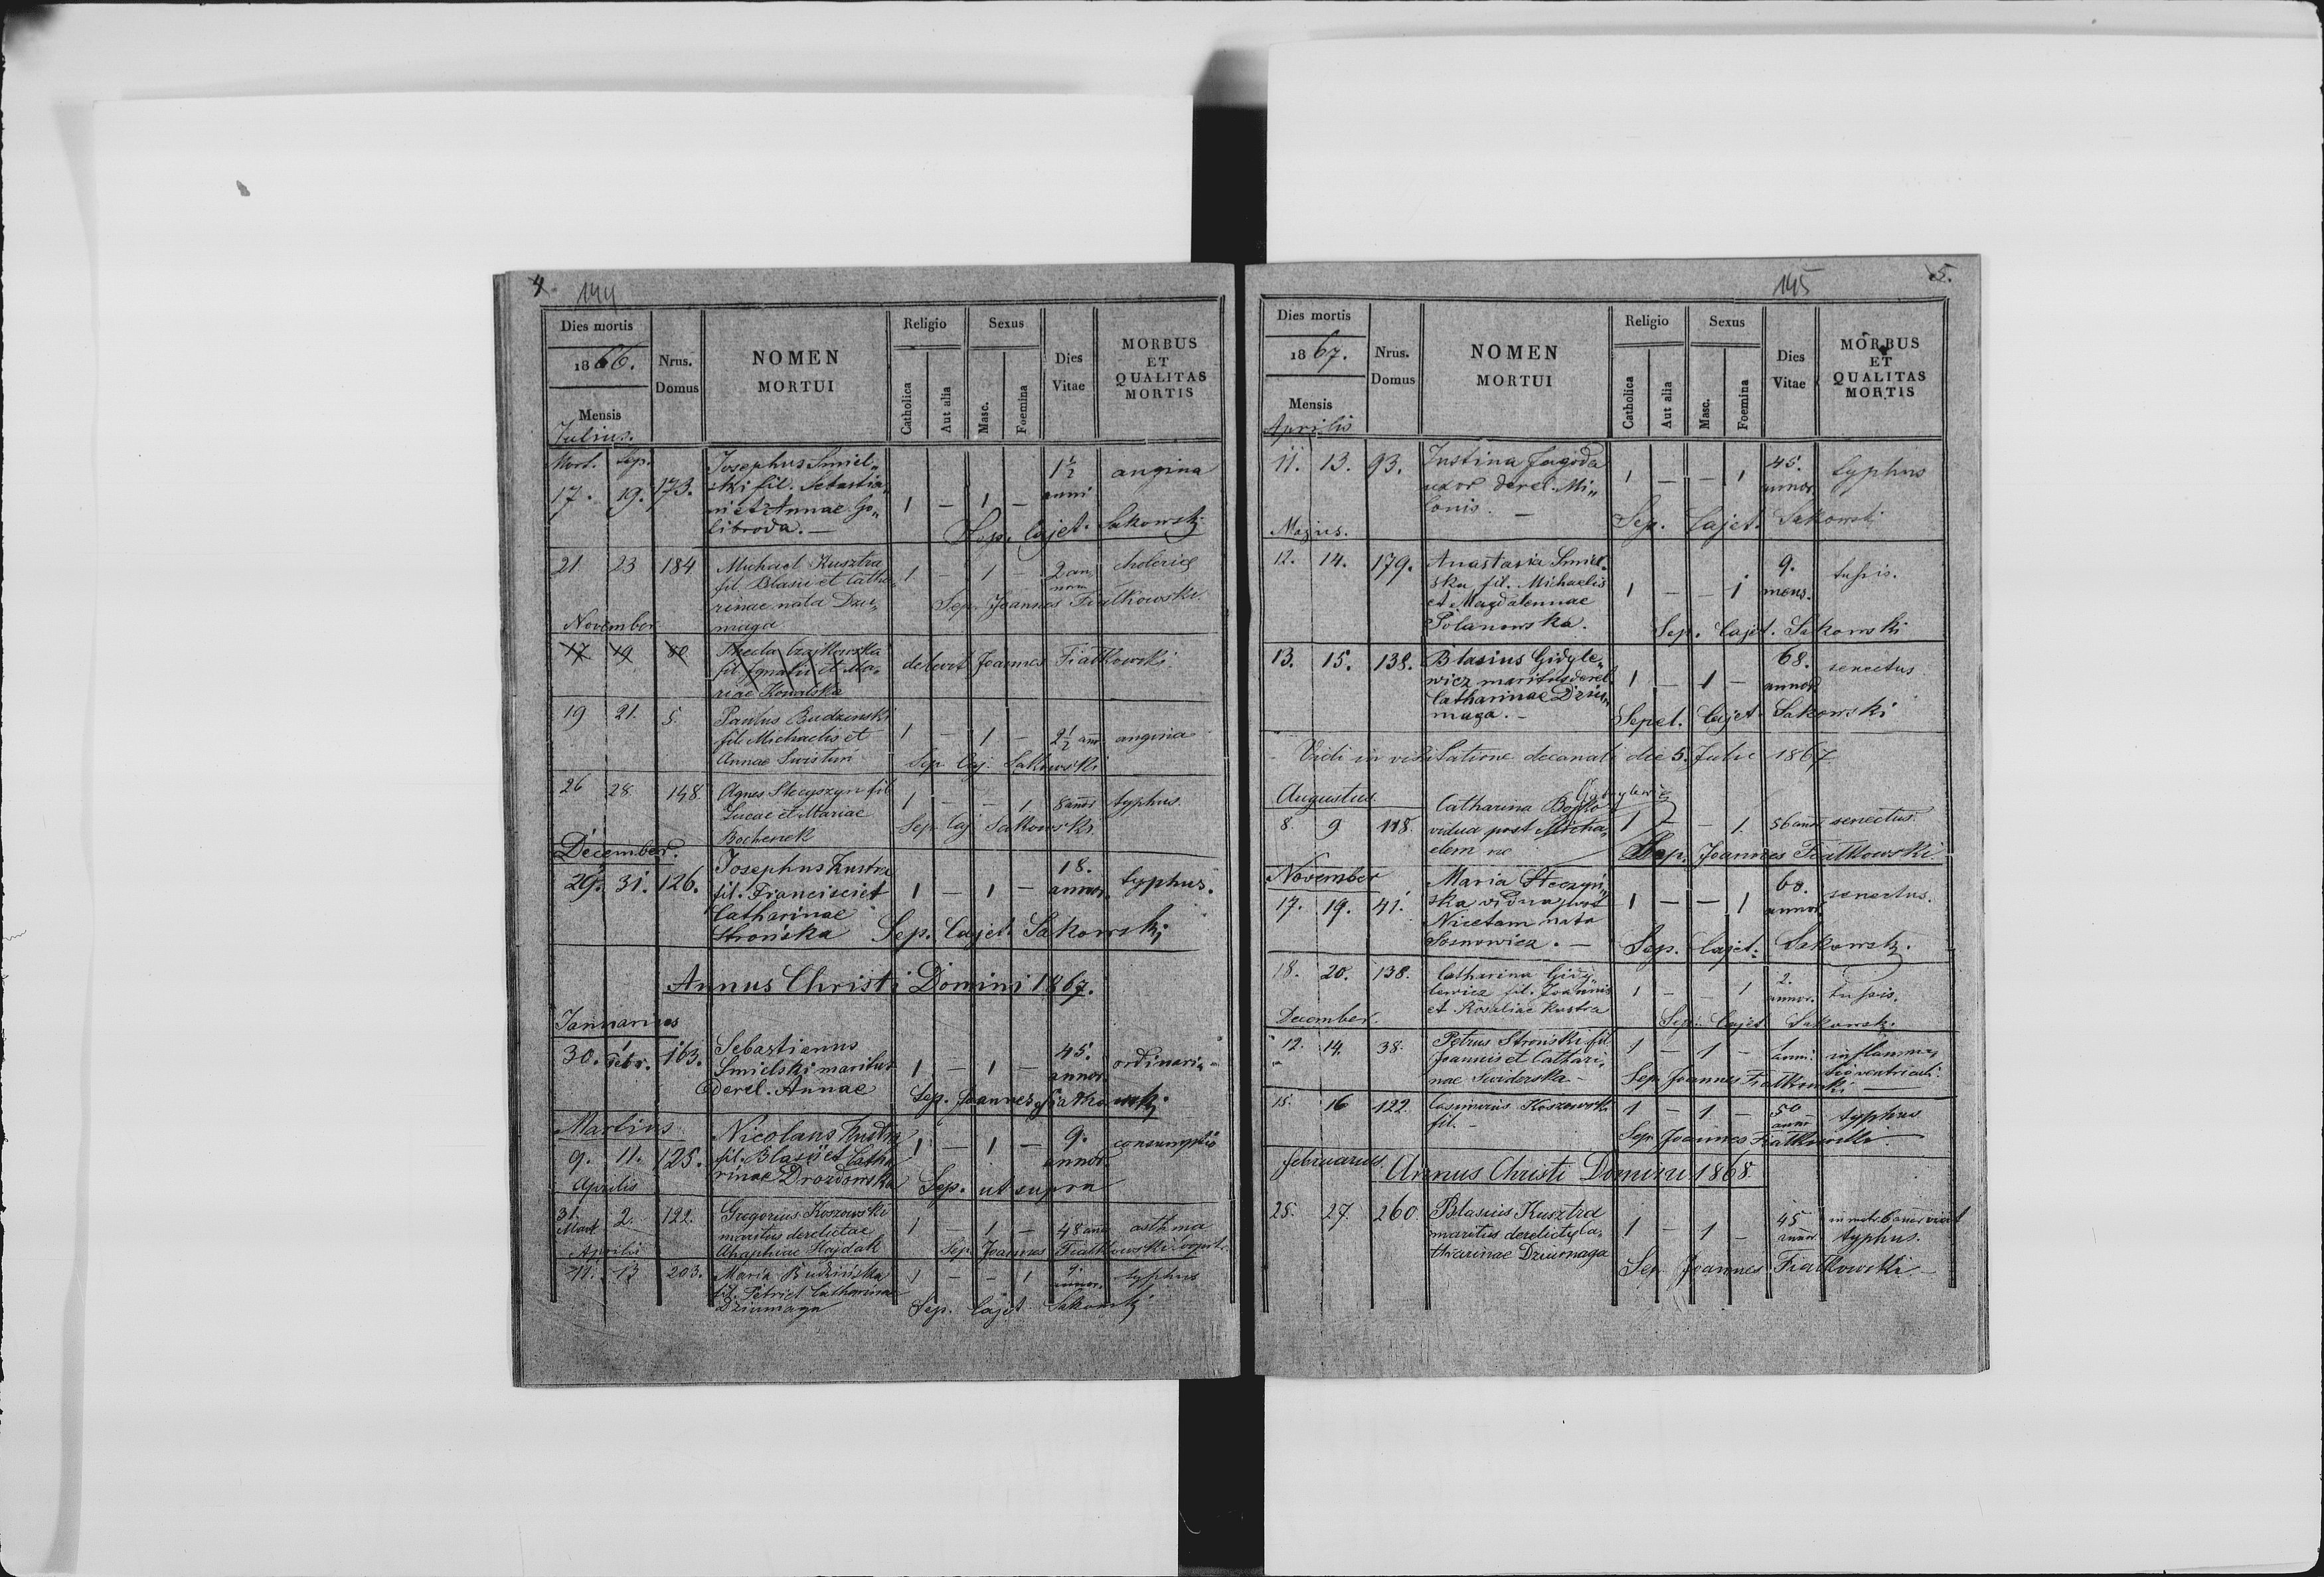 4. 144
Dies mortis
1866.
Mensis
Julius.
Nrus.
Domus
NOMEN
MORTUI
Religio
Catholica
Aut alia
Sexus
Masc.
Foemina
Dies
Vitae
MORBUS
ET
QUALITAS
MORTIS
Mort. Sep. Josephus Smiel„
17. 19. 173. ski fil. Sebastia„ 1 — 1 — 1½ anni angina
ni et Annae Go„
libroda. —
Sep. Cajet. Sakowski
21 23 184 Michael Kusztra 1 — 1 — 2 an
fil. Blasii et Catha„
rinae nata Dziu„
maga
Sep. Joannes Fiałkowski
November
17 19 80 Thecla Czajkowska
fil. Ignatii et Ma„
riae Kowalska
delevit Joannes Fiałkowski
19 21. 5. Paulus Budzinski 1 — 1 — 2½ ann angina
fil. Michaelis et
Annae Swistun
Sep. Caj. Sakowski
26 28 148. Agnes Steczyszyn fil 1 — — 1 8 annor typhus.
Lucae et Mariae
Bochenek
Sep. Caj. Sakowski
December.
29. 31. 126. Josephus Kustra 1 — 1 — 18. annor. typhus.
fil. Francisci et
Catharinae
Strońska
Sep. Cajet. Sakowski
Annus Christi Domini 1867.
Januarius
30. 1 Febr. 163. Sebastianus 1 — 1 — 45. annor. ordinaria
Smielski maritus
derel. Annae
Sep. Joannes Fiałkowski
Martius
9. 11. 125. Nicolaus Kustra 1 — 1 — 9. annor. consumptio
fil. Blasii et Catha
rinae Drozdowska
Sep. ut supra
Aprilis
31. Mart 2. 122. Gregorius Koszowski 1 — 1 — 48 ann asthma
maritus derelictae
Ahaphiae Hajdak
Sep. Joannes Fiałkowski
Aprilis
11. 13 203. Maria Budzińska 1 — — 1 annor. typhus
fil. Petri et Catharinae
Dziumaga
Sep. Cajet. Sakowski
145 5.
Dies mortis
1867.
Mensis
Aprilis
Nrus.
Domus
NOMEN
MORTUI
Religio
Catholica
Aut alia
Sexus
Masc.
Foemina
Dies
Vitae
MORBUS
ET
QUALITAS
MORTIS
11. 13. 93. Justina Jagoda 1 — — 1 45. annor. typhus
uxor derel. Mi„
lonis. —
Sep. Cajet. Sakowski
Majus.
12. 14. 179. Anastasia Smiel„ 1 — — 1 9. mens. tussis.
ska fil. Michaelis
et Magdalennae
Polanowska.
Sep. Cajet. Sakowski
13. 15. 138. Blasius Gidyle„ 1 — 1 — 68. annor senectus
wicz maritus derel.
Catharinae Dziu„
maga. —
Sepel. Cajet Sakowski
Vidi in visitatione decanali die 5. Julii 1867
Augustus.
8. 9 118. Catharina 1 — — 1. 56 annor senectus.
vidua post Micha„
elem
Sep. Joannes Fiałkowski
November
17. 19. 41. Maria Steczyń„ 1 — — 1 60. annor. senectus.
ska vidua post
Nicetam nata
Sosnowicz. —
Sep. Cajet. Sakowski.
18. 20. 138. Catharina Gidy„ 1 — — 1 2. annor. tussis.
lewicz fil. Joannis
et Rosaliae Kustra
Sep. Cajet Sakowski
December.
12. 14. 38. Petrus Stronski fil 1 — 1 — 1 anni inflamma„
Joannis et Cathari„ tio ventriculi
nae Swiderska —
Sep. Joannes Fiałkowski
15. 16 122 Casimirus Koszowski 1 — 1 — 50 anni typhus
fil. —
Sep. Joannes Fiałkowski
Februarius. Annus Christi Domini 1868.
25. 27. 260 Blasius Kusztra 1 — 1 — 45 annor
maritus derelictae Ca„ typhus.
tharinae Dziumaga
Sep. Joannes Fiałkowski. —